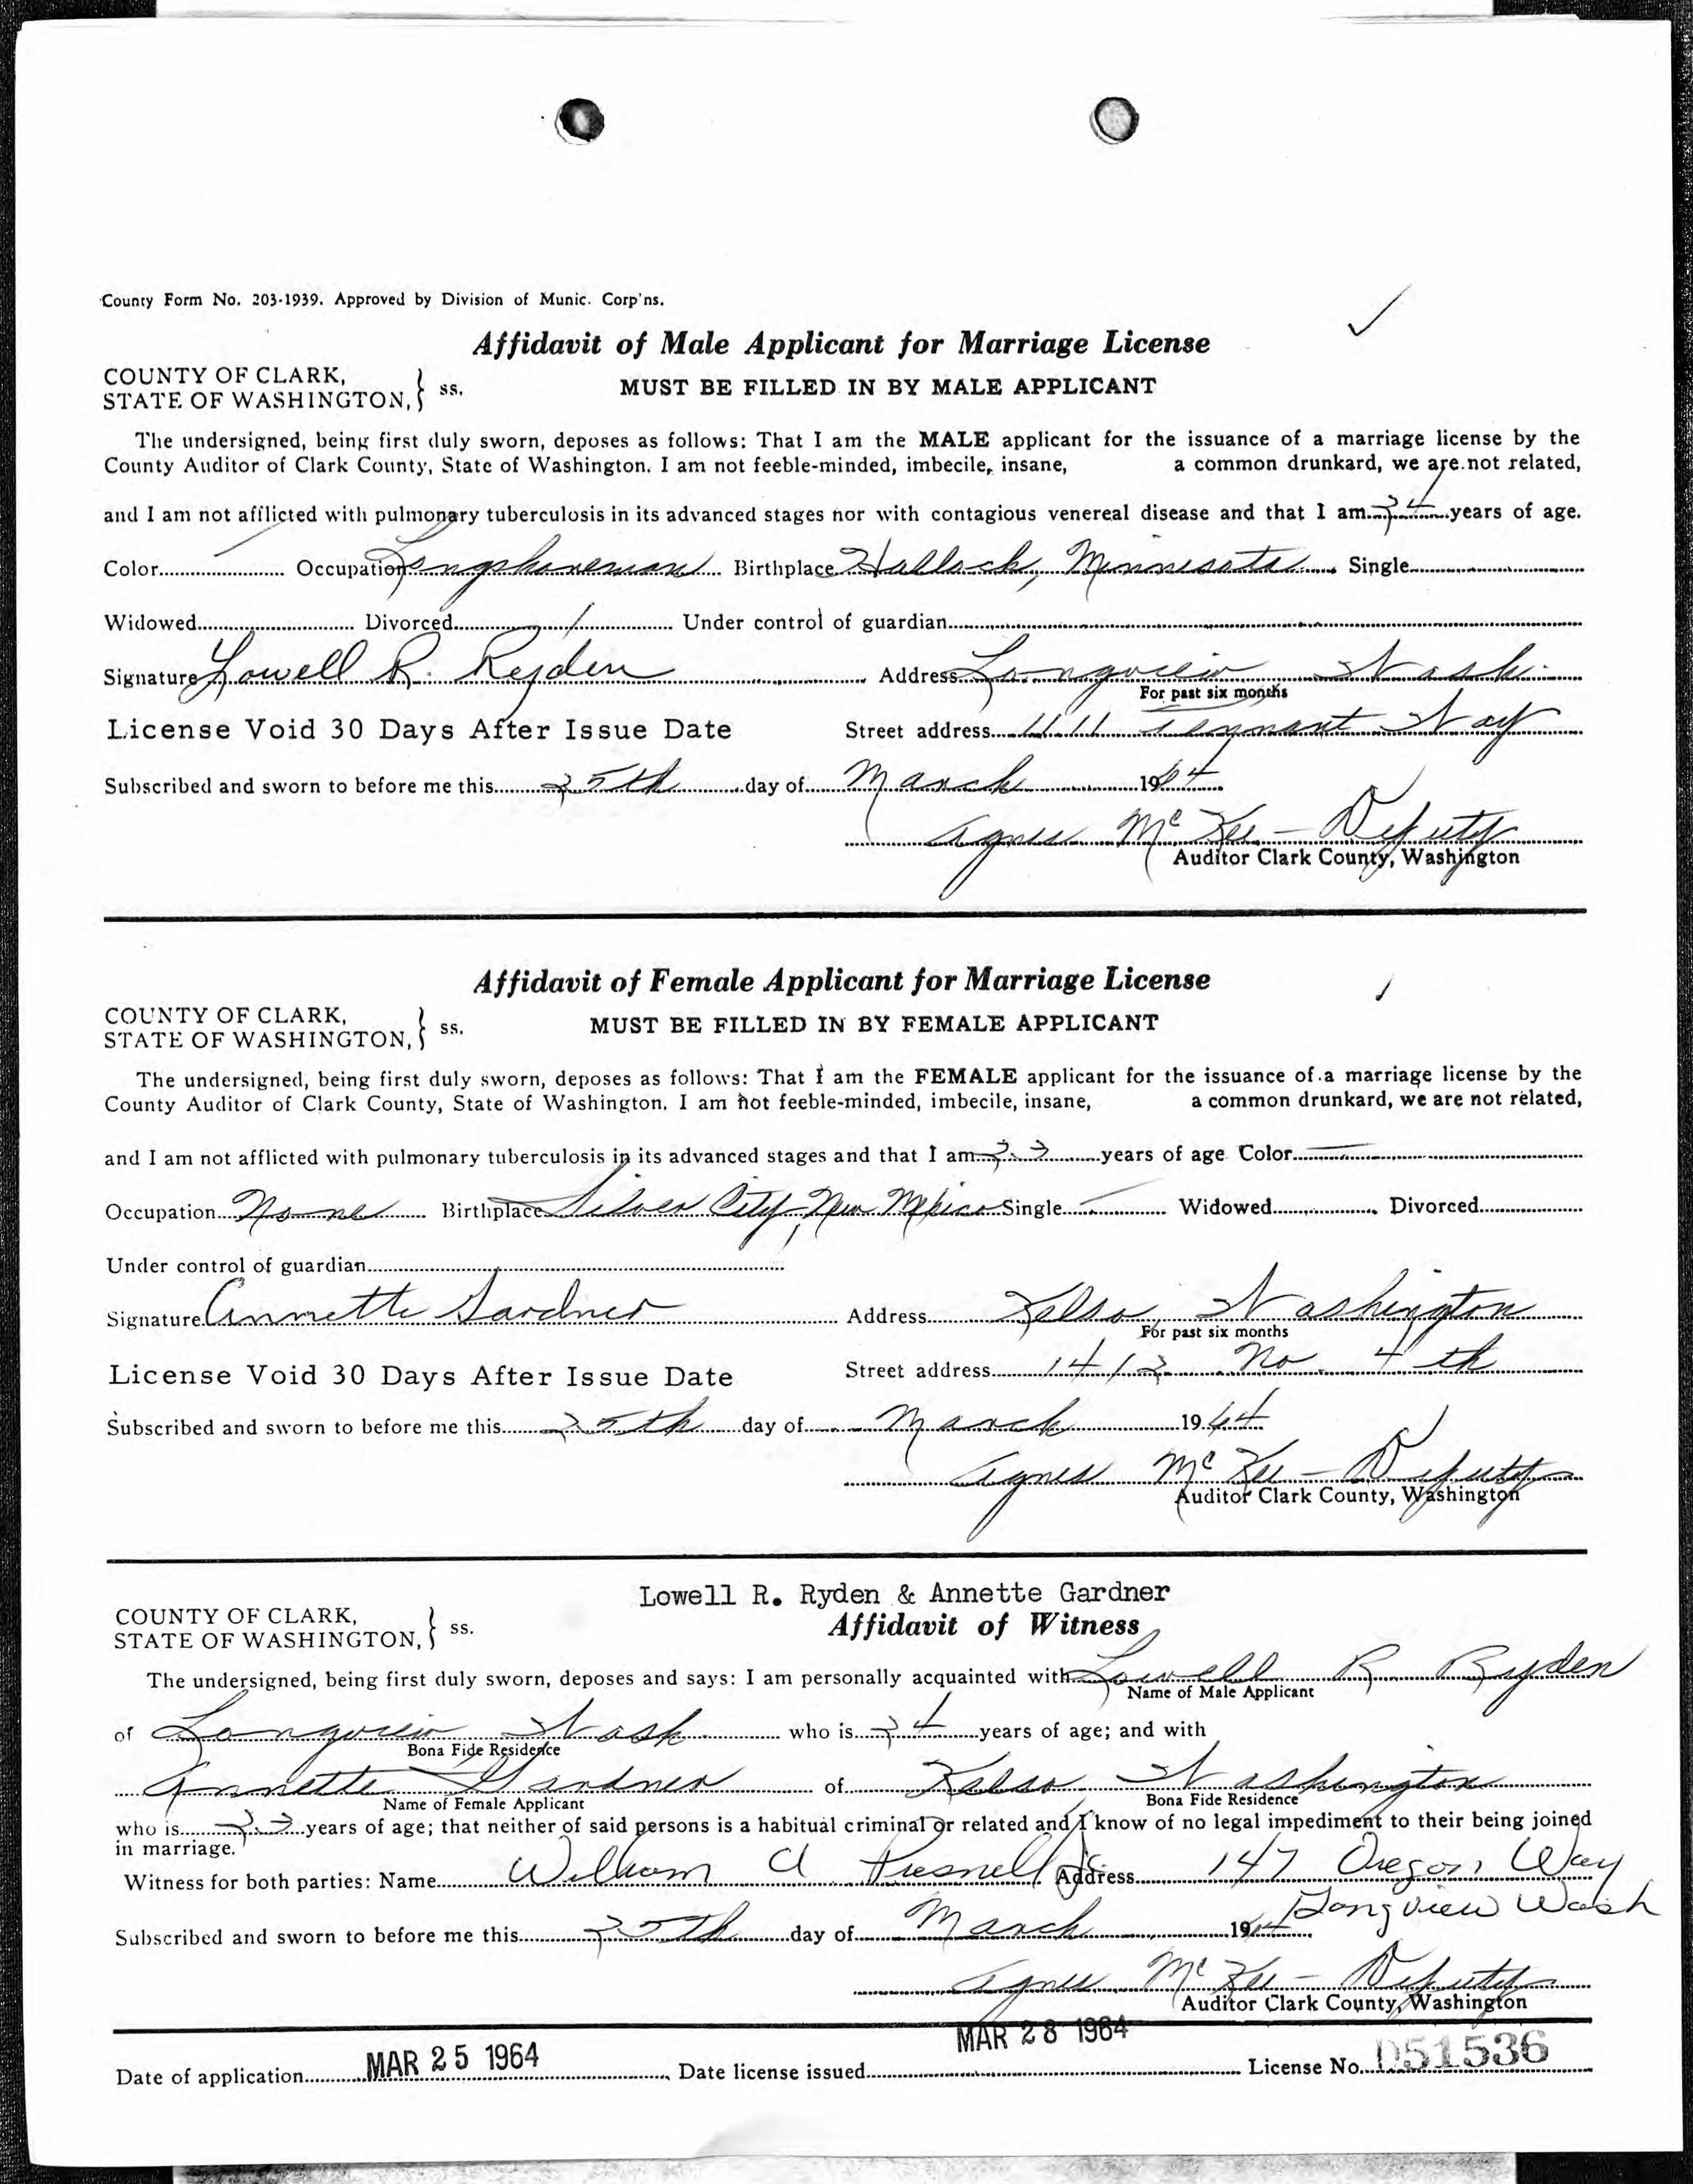 County Form No. 203-1939. Approved by Division of Munic. Corp'ns.
Affidavit of Male Applicant for Marriage License
COUNTY OF CLARK,
STATE OF WASHINGTON, } ss.
MUST BE FILLED IN BY MALE APPLICANT
The undersigned, being first duly sworn, deposes as follows: That I am the MALE applicant for the issuance of a marriage license by the
County Auditor of Clark County, State of Washington. I am not feeble-minded, imbecile, insane, a common drunkard, we are not related,
and I am not afflicted with pulmonary tuberculosis in its advanced stages nor with contagious venereal disease and that I am 34 years of age.
Color Occupation Longshoreman Birthplace Hallock, Minnesota Single
Widowed Divorced / Under control of guardian
Signature Lowell R. Ryden Address Longview Wash.
For past six months
License Void 30 Days After Issue Date Street address 1111 Tennant Way
Subscribed and sworn to before me this 25th day of March 1964
Agnes McKee - Deputy
Auditor Clark County, Washington
Affidavit of Female Applicant for Marriage License
COUNTY OF CLARK,
STATE OF WASHINGTON, } ss.
MUST BE FILLED IN BY FEMALE APPLICANT
The undersigned, being first duly sworn, deposes as follows: That I am the FEMALE applicant for the issuance of a marriage license by the
County Auditor of Clark County, State of Washington. I am not feeble-minded, imbecile, insane, a common drunkard, we are not related,
and I am not afflicted with pulmonary tuberculosis in its advanced stages and that I am years of age Color
Occupation None Birthplace Silver City, New Mexico Single Widowed Divorced
Under control of guardian
Signature Annette Gardner Address Kelso, Washington
For past six months
License Void 30 Days After Issue Date Street address 1412 No. 4th
Subscribed and sworn to before me this 25th day of March 1964
Agnes McKee - Deputy
Auditor Clark County, Washington
Lowell R. Ryden & Annette Gardner
COUNTY OF CLARK,
STATE OF WASHINGTON, } ss.
Affidavit of Witness
The undersigned, being first duly sworn, deposes and says: I am personally acquainted with Lowell R. Ryden
Name of Male Applicant
of Longview Wash who is 34 years of age; and with
Bona Fide Residence
Annette Gardner of Kelso Washington
Name of Female Applicant Bona Fide Residence
who is years of age; that neither of said persons is a habitual criminal or related and I know of no legal impediment to their being joined
in marriage.
Witness for both parties: Name William A Presnell Jr Address 147 Oregon Way
Longview Wash
Subscribed and sworn to before me this 25th day of March 1964
Agnes McKee - Deputy
Auditor Clark County, Washington
Date of application MAR 25 1964 Date license issued MAR 28 1964 License No. D51536